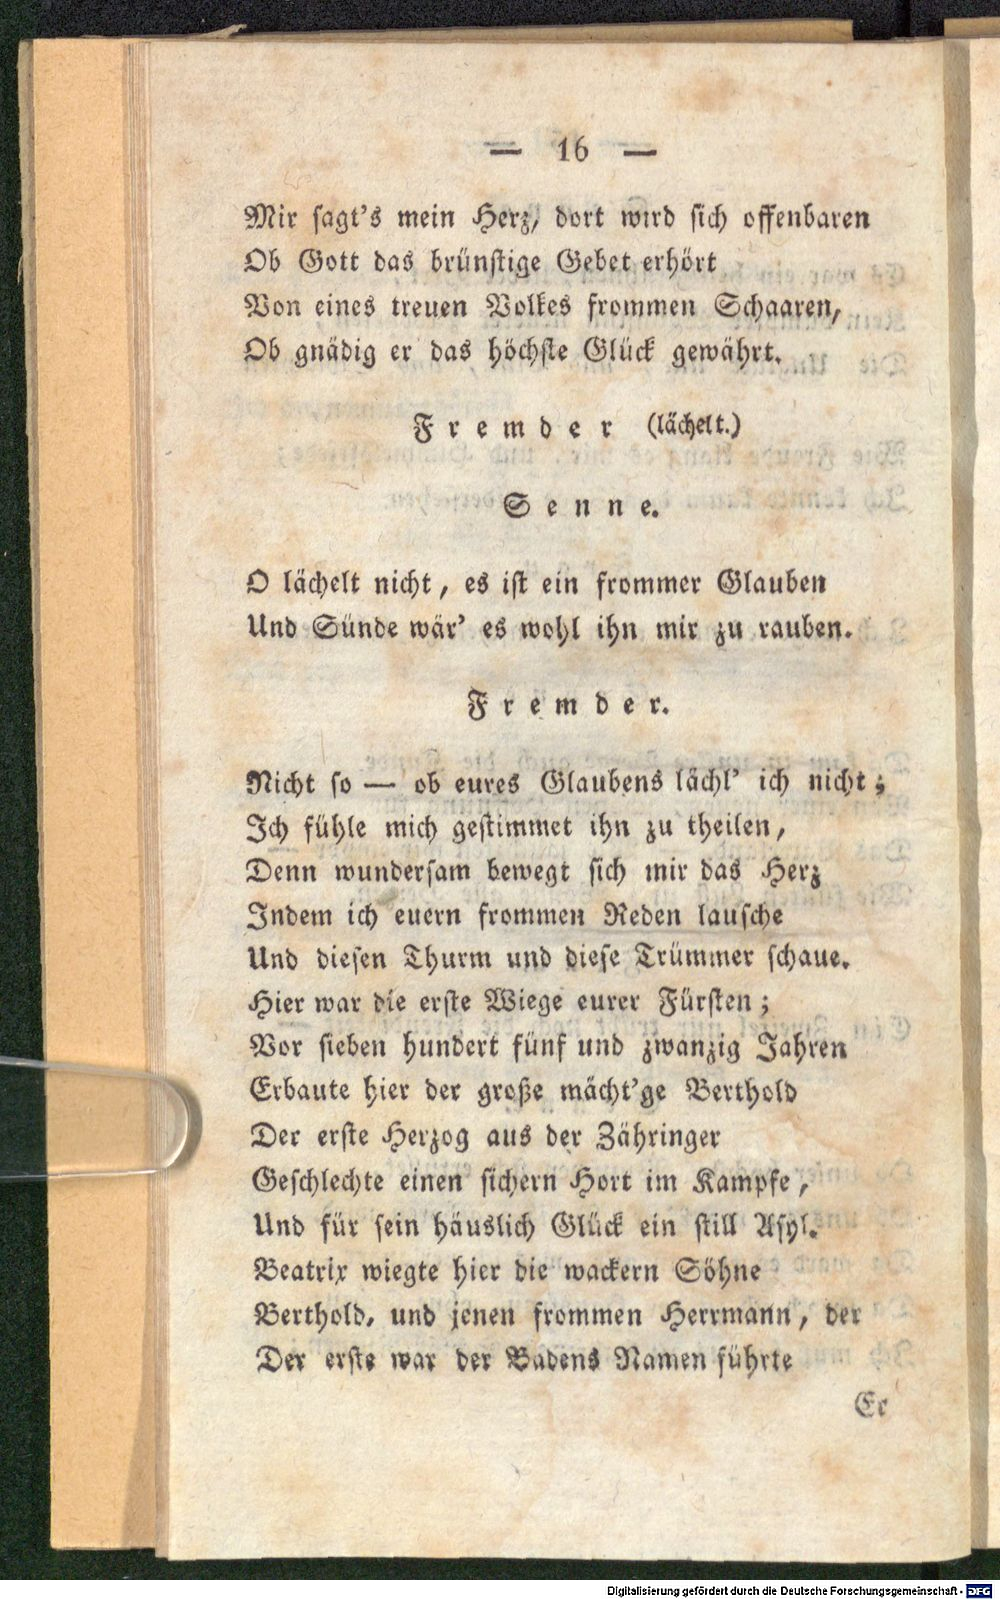 — 16 —
Mir sagt's mein Herz, dort wird sich offenbaren
Ob Gott das brünstige Gebet erhört
Von eines treuen Volkes frommen Schaaren,
Ob gnädig er das höchste Glück gewährt.
Fremder (lächelt.)
Senne.
O lächelt nicht, es ist ein frommer Glauben
Und Sünde wär' es wohl ihn mir zu rauben.
Fremder.
Nicht so — ob eures Glaubens lächl' ich nicht;
Ich fühle mich gestimmet ihn zu theilen,
Denn wundersam bewegt sich mir das Herz
Indem ich euern frommen Reden lausche
Und diesen Thurm und diese Trümmer schaue.
Hier war die erste Wiege eurer Fürsten;
Vor sieben hundert fünf und zwanzig Jahren
Erbaute hier der große mächt'ge Berthold
Der erste Herzog aus der Zähringer
Geschlechte einen sichern Hort im Kampfe,
Und für sein häuslich Glück ein still Asyl.
Beatrix wiegte hier die wackern Söhne
Berthold, und jenen frommen Herrmann, der
Der erste war der Badens Namen führte
Er
Digitalisierung gefördert durch die Deutsche Forschungsgemeinschaft - DFG